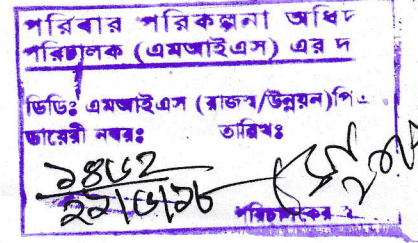 পরিবার পরিকল্পনা অধিদ
পরিচালক (এমআইএস) এর দ
ডিডিঃ এমআইএস (রাজস্ব/উন্নয়ন)পি
ডায়েরী নম্বরঃ তারিখঃ
পরিচালকের